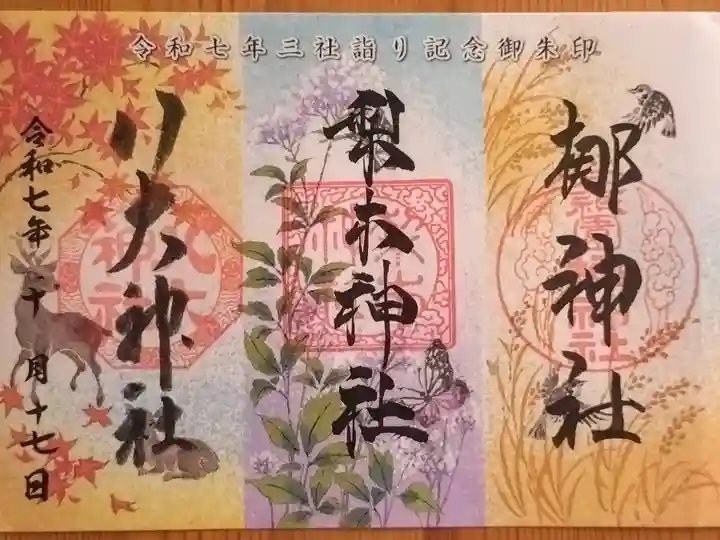 令和七年三社詣り記念御朱印
梛神社
梨木神社
八大神社
令和七年十月十七日